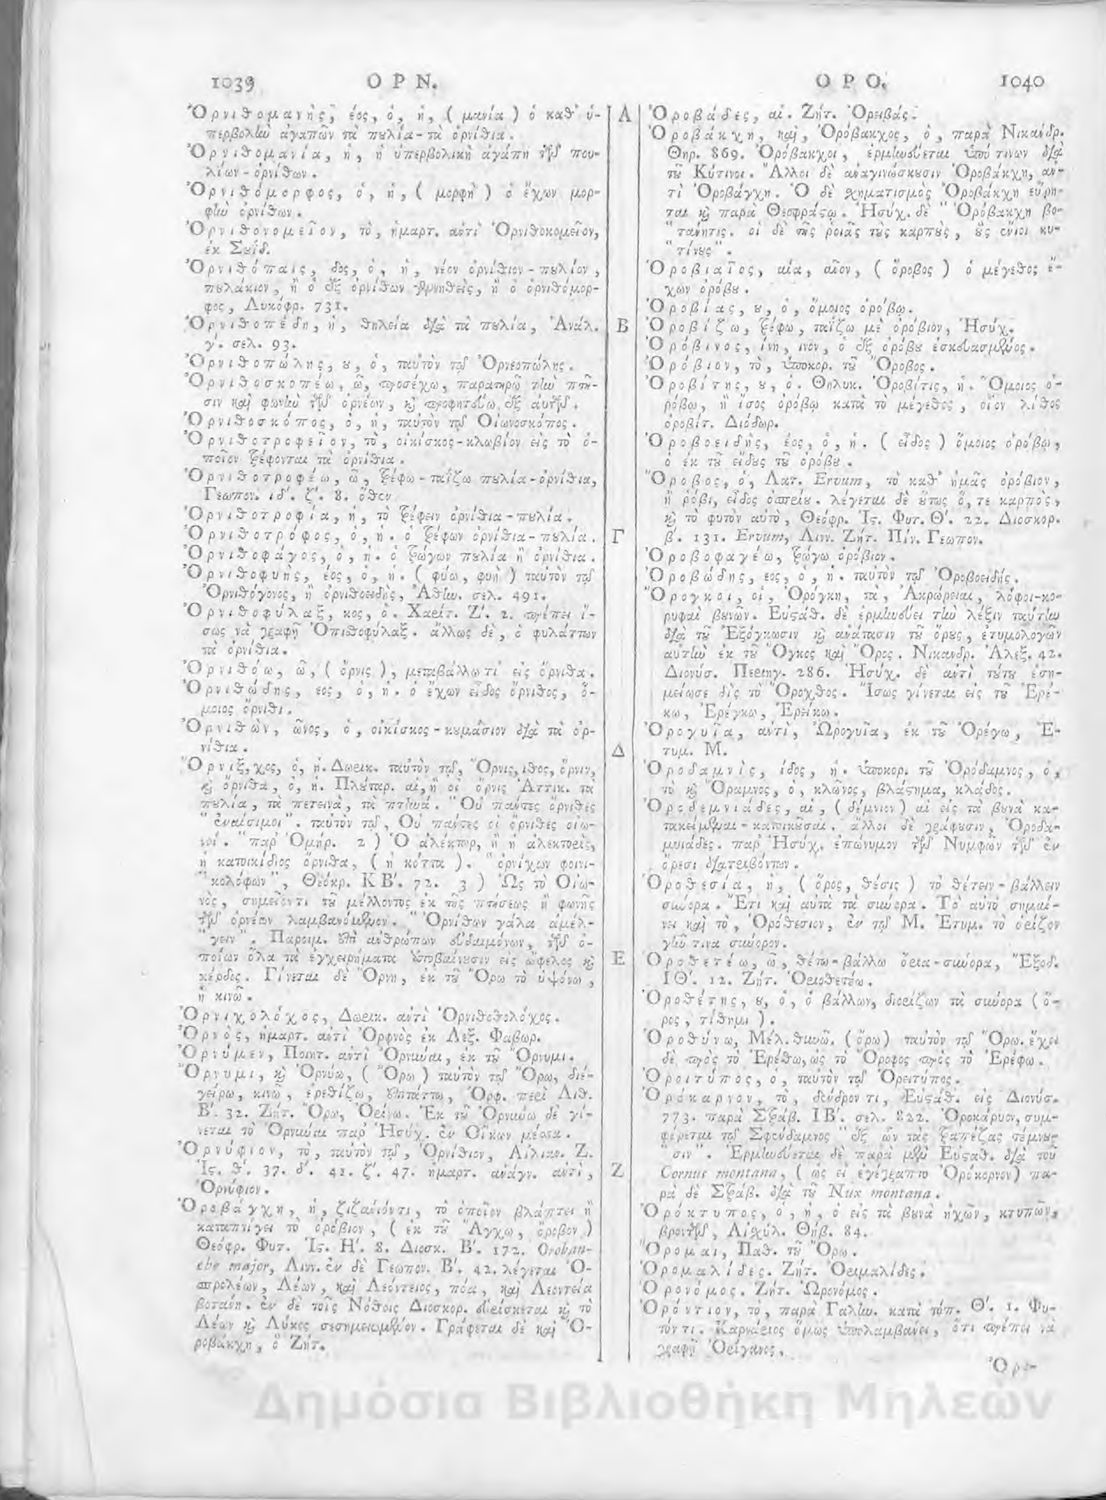 1039 ΟΡΝ.
Ὀρνιθομανὴς, έος, ὁ, ἡ, ( μανία ) ὁ καθ' ὑ-
περβολὴν ἀγαπῶν τὰ πουλία-τὰ ὀρνίθια.
Ὀρνιθομανία, ἡ, ἡ ὑπερβολικὴ ἀγάπη τῶν που-
λίων-ὀρνίθων.
Ὀρνιθόμορφος, ὁ, ἡ, ( μορφὴ ) ὁ ἔχων μορ-
φὴν ὀρνίθων.
Ὀρνιθονομεῖον, τὸ, ἡμαρτ. ἀντὶ Ὀρνιθοκομεῖον,
ἐκ Σουΐδ.
Ὀρνιθόπαις, δος, ὁ, ἡ, νέον ὀρνίθιον-πουλίον,
πουλάκιον, ἢ ὁ ἐξ ὀρνίθων γεννηθεὶς, ἢ ὁ ὀρνιθόμορ-
φος, Λυκόφρ. 731.
Ὀρνιθοπέδη, ἡ, θηλεία διὰ τὰ πουλία, Ἀνάλ.
γ'. σελ. 93.
Ὀρνιθοπώλης, ου, ὁ, ταυτὸν τῷ Ὀρνεοπώλης.
Ὀρνιθοσκοπέω, ῶ, προσέχω, παρατηρῶ τὴν πτῆ-
σιν καὶ φωνὴν τῶν ὀρνέων, καὶ προφητεύω ἐξ αὐτῶν.
Ὀρνιθοσκόπος, ὁ, ἡ, ταυτὸν τῷ Οἰωνοσκόπος.
Ὀρνιθοτροφεῖον, τὸ, οἰκίσκος-κλωβίον εἰς τὸ ὁ-
ποῖον τρέφονται τὰ ὀρνίθια.
Ὀρνιθοτροφέω, ῶ, τρέφω-ταΐζω πουλία-ὀρνίθια,
Γεωπον. ιδ'. ζ'. 8. ὅθεν
Ὀρνιθοτροφία, ἡ, τὸ τρέφειν ὀρνίθια-πουλία.
Ὀρνιθοτρόφος, ὁ, ἡ. ὁ τρέφων ὀρνίθια-πουλία.
Ὀρνιθοφάγος, ὁ, ἡ. ὁ τρώγων πουλία ἢ ὀρνίθια.
Ὀρνιθοφυὴς, έος, ὁ, ἡ. ( φύω, φυὴ ) ταυτὸν τῷ
Ὀρνιθόγονος, ἢ ὀρνιθοειδὴς, Ἀθήν. σελ. 491.
Ὀρνιθοφύλαξ, κος, ὁ. Χαρίτ. Ζ'. 2. πρέπει ἴ-
σως νὰ γραφῇ Ὀπισθοφύλαξ. ἄλλως δὲ, ὁ φυλάττων
τὰ ὀρνίθια.
Ὀρνιθόω, ῶ, ( ὄρνις ), μεταβάλλω τὶ εἰς ὄρνιθα.
Ὀρνιθώδης, εος, ὁ, ἡ. ὁ ἔχων εἶδος ὄρνιθος, ὅ-
μοιος ὄρνιθι.
Ὀρνιθὼν, ῶνος, ὁ, οἰκίσκος-κουμάσιον διὰ τὰ ὀρ-
νίθια.
Ὄρνιξ, χος, ὁ, ἡ. Δωρικ. ταυτὸν τῷ, Ὄρνις, ιθος, ὄρνιν,
καὶ ὄρνιθα, ὁ, ἡ. Πλούταρ. αἱ, ἢ οἱ ὄρνις Ἀττικ. τὰ
πουλία, τὰ πετεινὰ, τὰ πτηνά. "Οὐ πάντες ὄρνιθες
"ἐναίσιμοι". ταυτὸν τῷ, Οὐ πάντες οἱ ὄρνιθες οἰω-
νοὶ. "παρ' Ὁμήρ. 2 ) Ὁ ἀλέκτωρ, ἢ ἡ ἀλεκτορὶς,
ἡ κατοικίδιος ὄρνιθα, ( ἡ κόττα ). "ὀρνίχων φοινι-
"κολόφων", Θεόκρ. ΚΒ'. 72. 3 ) Ὡς τὸ Οἰω-
νὸς, σημεῖόν τι τοῦ μέλλοντος ἐκ τῆς πτήσεως ἢ φωνῆς
τῶν ὀρνέων λαμβανόμενον. "Ὀρνίθων γάλα ἀμέλ-
"γειν". Παροιμ. ἐπὶ ἀνθρώπων εὐδαιμόνων, τῶν ὁ-
ποίων ὅλα τὰ ἐγχειρήματα ἀποβαίνουσιν εἰς ὤφελος καὶ
κέρδος. Γίνεται δὲ Ὄρνη, ἐκ τοῦ Ὄρω τὸ ὑψόνω,
ἢ κινῶ.
Ὀρνιχολόχος, Δωρικ. ἀντὶ Ὀρνιθοθολόχος.
Ὀρνὸς, ἡμαρτ. ἀντὶ Ὀρφνὸς ἐκ Λεξ. Φαβωρ.
Ὀρνύμεν, Ποιητ. ἀντὶ Ὀρνύναι, ἐκ τοῦ Ὄρνυμι.
Ὄρνυμι, καὶ Ὀρνύω, ( Ὄρω ) ταυτὸν τῷ Ὄρω, διε-
γείρω, κινῶ, ἐρεθίζω, ἐπιτάττω, Ὀρφ. περὶ Λιθ.
Β'. 32. Ζήτ. Ὄρω, Ὀρίνω. Ἐκ τοῦ Ὀρνύω δὲ γί-
νεται τὸ Ὄρνυναι παρ' Ἡσύχ. ἐν Οἴκων μέρεα.
Ὀρνύφιον, τὸ, ταυτὸν τῷ, Ὀρνίθιον, Αἰλιαν. Ζ.
Ἱς. θ'. 37. δ'. 41. ζ'. 47. ἡμαρτ. ἀνάγν. ἀντὶ,
Ὀρνύφιον.
Ὀροβάγχη, ἡ, ζιζανιόντι, τὸ ὁποῖον βλάπτει ἢ
καταπνίγει τὸ ὀρόβιον, ( ἐκ τοῦ Ἄγχω, ὄροβον )
Θεόφρ. Φυτ. Ἱς. Η'. 8. Διοσκ. Β'. 172. Oroban-
che major, Λινν. ἐν δὲ Γεωπον. Β'. 42. λέγεται Ὀ-
σπρολέων, Λέων, καὶ Λεόντειος, πόα, καὶ Λεοντεία
βοτάνη. ἐν δὲ τοῖς Νόθοις Διοσκορ. εὑρίσκεται καὶ τὸ
Λέων καὶ Λύκος σεσημειωμένον. Γράφεται δὲ καὶ Ὀ-
ροβάκχη, ὃ Ζήτ.
Α
Β
Γ
Δ
Ε
Ζ
ΟΡΟ. 1040
Ὀροβάδες, αἱ. Ζήτ. Ὀρειβάς.
Ὀροβάκχη, καὶ, Ὀρόβακχος, ὁ, παρὰ Νικάνδρ.
Θηρ. 869. Ὀρόβακχοι, ἑρμηνεύεται ὑπό τινων διὰ
τοῦ Κύτινοι. Ἄλλοι δὲ ἀναγινώσκουσιν Ὀροβάκχη, ἀν-
τὶ Ὀροβάγχη. Ὁ δὲ σχηματισμὸς Ὀροβάκχη εὕρη-
ται καὶ παρὰ Θεοφράστῳ. Ἡσύχ. δὲ "Ὀρόβακχη βο-
"τάνητις. οἱ δὲ τῆς ῥοιᾶς τοὺς καρποὺς, οὓς ἔνιοι κυ-
"τίνους".
Ὀροβιαῖος, αία, αῖον, ( ὄροβος ) ὁ μέγεθος ἔ-
χων ὀρόβου.
Ὀροβίας, ου, ὁ, ὅμοιος ὀρόβῳ.
Ὀροβίζω, τρέφω, ταΐζω μὲ ὀρόβιον, Ἡσύχ.
Ὀρόβινος, ίνη, ινον, ὁ ἐξ ὀρόβου ἐσκευασμένος.
Ὀρόβιον, τὸ, ὑποκορ. τοῦ Ὄροβος.
Ὀροβίτης, ου, ὁ. Θηλυκ. Ὀροβῖτις, ἡ. Ὅμοιος ὀ-
ρόβῳ, ἢ ἴσος ὀρόβῳ κατὰ τὸ μέγεθος, οἷον λίθος
ὀροβίτ. Διόδωρ.
Ὀροβοειδὴς, έος, ὁ, ἡ. ( εἶδος ) ὅμοιος ὀρόβῳ,
ὁ ἐκ τοῦ εἴδους τοῦ ὀρόβου.
Ὄροβος, ὁ, Λατ. Ervum, τὸ καθ' ἡμᾶς ὀρόβιον,
ἢ ῥόβι, εἶδος ὀσπρίου. λέγεται δὲ οὕτως ὅ,τε καρπὸς,
καὶ τὸ φυτὸν αὐτὸ, Θεόφρ. Ἱς. Φυτ. Θ'. 22. Διοσκορ.
β'. 131. Ervum, Λινν. Ζήτ. Πίν. Γεωπον.
Ὀροβοφαγέω, τρώγω ὀρόβιον.
Ὀροβώδης, εος, ὁ, ἡ. ταυτὸν τῷ Ὀροβοειδής.
Ὄρογκοι, οἱ, Ὀρόγκη, τὰ, Ἀκρώρειαι, λόφοι-κο-
ρυφαὶ βουνῶν. Εὐσταθ. δὲ ἑρμηνεύει τὴν λέξιν ταύτην
διὰ τοῦ Ἐξόγκωσιν καὶ ἀνάτασιν τοῦ ὄρους, ἐτυμολογῶν
αὐτὴν ἐκ τοῦ Ὄγκος καὶ Ὄρος. Νίκανδρ. Ἀλεξ. 42.
Διονύσ. Περιηγ. 286. Ἡσύχ. δὲ ἀντὶ τούτου ἐση-
μείωσε δὶς τὸ Ὄροχθος. Ἴσως γίνεται εἰς τοῦ Ἐρέ-
κω, Ἐρέγκω, Ἐρείκω.
Ὀρογυῖα, ἀντὶ, Ὠρογυῖα, ἐκ τοῦ Ὀρέγω, Ἐ-
τυμ. Μ.
Ὀροδαμνὶς, ίδος, ἡ. ὑποκορ. τοῦ Ὀρόδαμνος, ὁ,
τὸ καὶ Ὄραμνος, ὁ, κλῶνος, βλάστημα, κλάδος.
Ὀροδεμνιάδες, αἱ, ( δέμνιον ) αἱ εἰς τὰ βουνὰ κα-
τακείμεναι-κατοικοῦσαι. ἄλλοι δὲ γράφουσιν, Ὀροδα-
μνιάδες. παρ' Ἡσύχ. ἐπώνυμον τῶν Νυμφῶν τῶν ἐν
ὄρεσι διατριβόντων.
Ὀροθεσία, ἡ, ( ὅρος, θέσις ) τὸ θέτειν-βάλλειν
σύνορα. Ἔτι καὶ αὐτὰ τὰ σύνορα. Τὸ αὐτὸ σημαί-
νει καὶ τὸ, Ὁρόθεσιον, ἐν τῷ Μ. Ἐτυμ. τὸ ὁρίζον
γῆν τινα σύνορον.
Ὁροθετέω, ῶ, θέτω-βάλλω ὅρια-σύνορα, Ἔξοδ.
ΙΘ'. 12. Ζήτ. Ὁριοθετέω.
Ὁροθέτης, ου, ὁ, ὁ βάλλων, διορίζων τὰ σύνορα ( ὅ-
ρος, τίθημι ).
Ὀροθύνω, Μέλ. θυνῶ. ( ὄρω ) ταυτὸν τῷ Ὄρω. ἔχει
δὲ πρὸς τὸ Ἐρέθω, ὡς τὸ Ὄροφος πρὸς τὸ Ἐρέφω.
Ὀροιτύπος, ὁ, ταυτὸν τῷ Ὀρειτύπος.
Ὀρόκαρυον, τὸ, δένδρον τι, Εὐσταθ. εἰς Διονύσ.
773. παρὰ Στράβ. ΙΒ'. σελ. 822. Ὀροκάρυον, συμ-
φέρεται τῷ Σφένδαμνος "ἐξ ὧν τὰς τραπέζας τέμνου-
"σιν". Ἑρμηνεύεται δὲ παρὰ μὲν Εὐσταθ. διὰ τοῦ
Cornus montana, ( ὡς εἰ ἐγέγραπτο Ὀρόκορνον) πα-
ρὰ δὲ Στράβ. διὰ τοῦ Nux montana.
Ὀρόκτυπος, ὁ, ἡ, ὁ εἰς τὰ βουνὰ ἠχῶν, κτυπῶν,
βροντῶν, Αἰσχύλ. Θηβ. 84.
Ὄρομαι, Παθ. τοῦ Ὄρω.
Ὀρομαλίδες. Ζήτ. Ὀριμαλίδες.
Ὀρονόμος. Ζήτ. Ὠρονόμος.
Ὀρόντιον, τὸ, παρὰ Γαλην. κατὰ τόπ. Θ'. 1. Φυ-
τόν τι. Κορνάριος ὅμως ὑπολαμβάνει, ὅτι πρέπει νὰ
γραφῇ Ὀρίγανος.
Ὀρο-
Δημόσια Βιβλιοθήκη Μηλεών